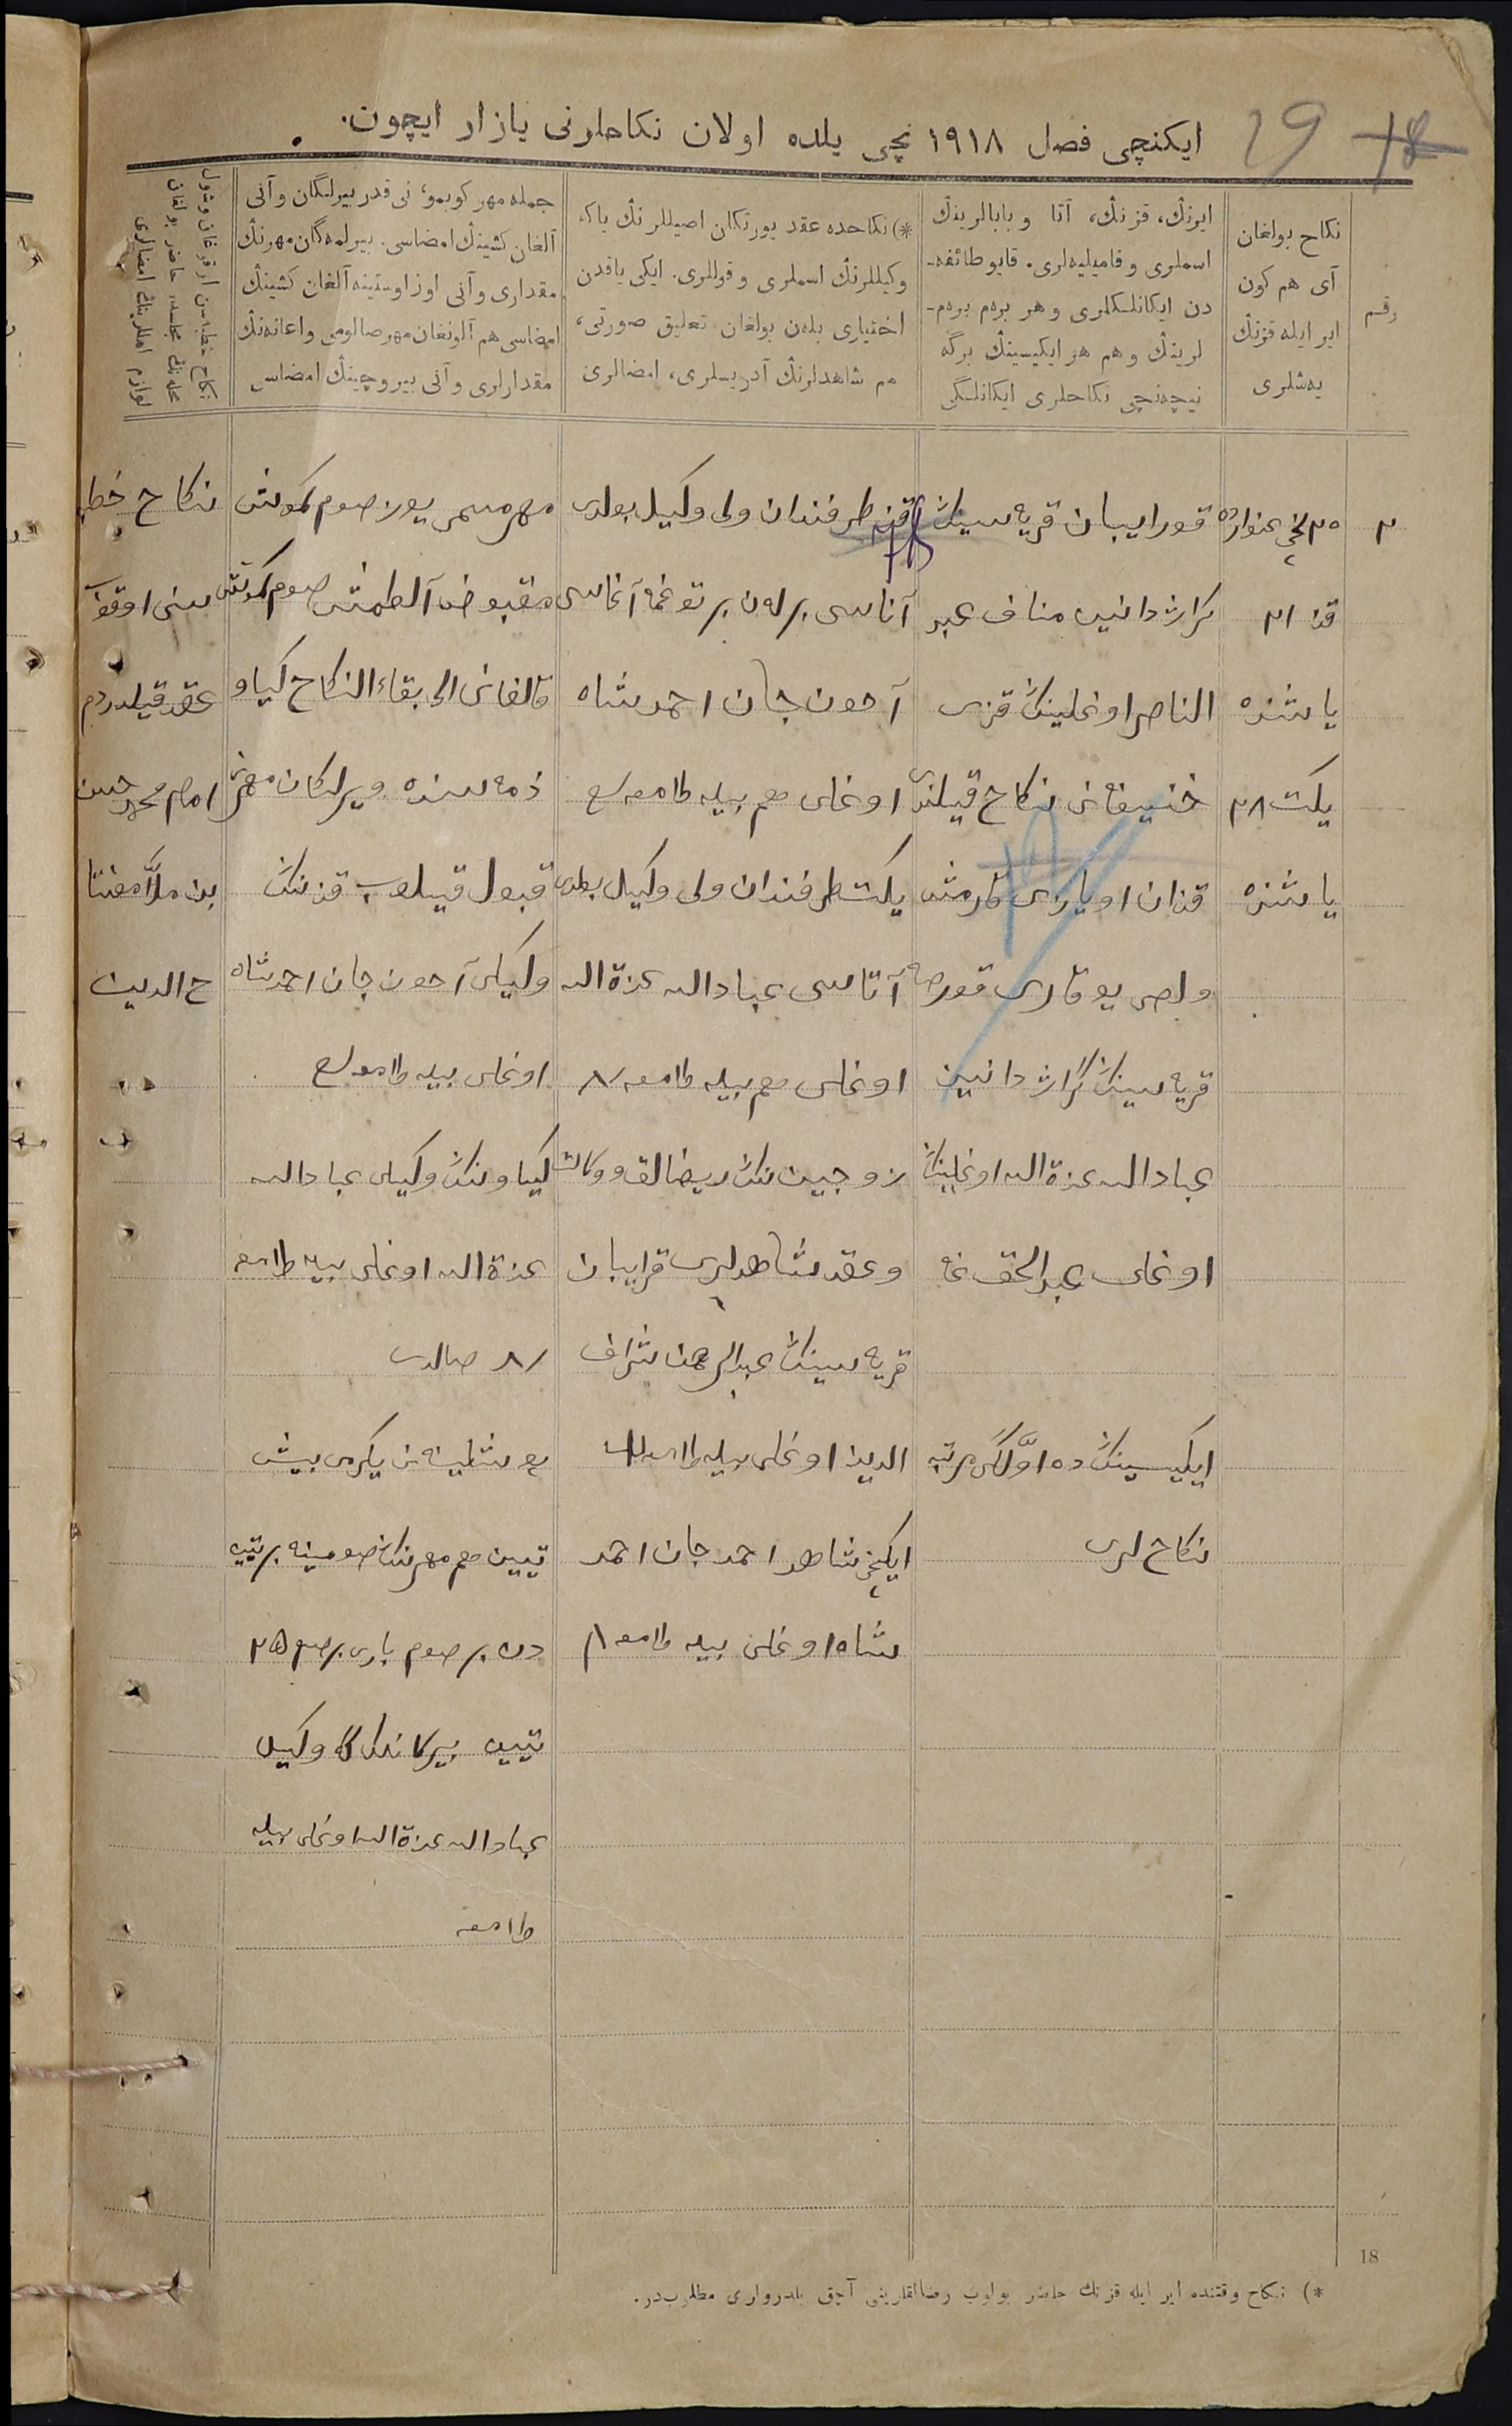 29 18
ایکنچی فصل ۱۹۱۸ نچی یلده اولان نکاحلرنی یازار ایچون.
رقم
نکاح بولغان
آی هم کون
ایر ایله قزنڭ
یەشلری
ایرنڭ، قزنڭ، آتا و بابالرینڭ
اسملری و فامیلیەلری. قایو طائفه‌ـ
دن ایکانلکلری و هر برەم برەم‌ـ
لرینڭ و هم هر ایکیسینڭ برگه
نیچەنچی نکاحلری ایکانلگی
*) نکاحده عقد یورتکان اصیللرنڭ یاکه
وکیللرنڭ اسملری و قوللری. ایکی یاقدن
اختیاری بلەن بولغان تعلیق صورتی،
هم شاهدلرنڭ آدریسلری، امضالری
جمله مهر کوبمو، نی قدر بیرلگان و آنی
آلغان کشینڭ امضاسی. بیرلمەگان مهرنڭ
مقداری و آنی اوز اوستینه آلغان کشینڭ
امضاسی هم آلونغان مهر صالومی و اعانه‌نڭ
مقدارلری و آنی بیروچینڭ امضاسی
نکاح خطبه‌سن اوقوغان و شول
محله‌نڭ مجلسده حاضر بولغان
لوازم اهللرینڭ امضالری
۲
۲۰ نچی عنوارده
قز ۲۱
یاشنده
یکت ۲۸
یاشنده
قورایبان قریه سینڭ
کراژدانین مناف عبد
الناصر اوغلینڭ قزی
حنیفه‌نی نکاح قیلندی
قزان اویازی تارمش
ولص یوقاری قورصه
قریه سینڭ گراژدانین
عبادالله عزة الله اوغلینڭ
اوغلی عبدالحق غه
ایکیسینڭ ده اوّلگی مرتبه
نکاح لری
قز طرفندان ولی وکیل بولدی
آناسی برله‌ن بر توغمه آغاسی
آحون جان احمدشاه
اوغلی هم بیله طامعه
یکت طرفندان ولی وکیل بولدی
آتاسی عبادالله عزة الله
اوغلی هم بیله طامعه
زوجین نڭ ریضالق و وکالت
وعقد شاهدلری قرایبان
قریه سینڭ عبدالرحمن شراف
الدین اوغلی بیله طامعه
ایکنچی شاهد احمد جان احمد
شاه اوغلی بیله طامعه
مهر مسمی یوز صوم کموش
مقبوض آلطمش صوم کموش
قالغانی الی بقاء النکاح کیاو
ذمه سنده ویرلکان مهرنی
قبول قیلوب قزننڭ
وکیلی آحون جان احمدشاه
اوغلی بیله طامعه
کیاوننڭ وکیلی عبادالله
عزة الله اوغلی بیله طامعه
صالدی
یکرمی بیش
تیین هم مهرننڭ صومینه بر تیین
دن بر صوم باری بر صوم ۲۵
تیین بیرکانلککا وکیل
عبادالله عزة الله اوغلی بیله
طامعه
نکاح خطبه
سنی اوقوب
عقد قیلدردم
امام محمد حسن
بن ملاّ مفتا
ح الدین
18
*) نکاح وقتنده ایر ایله قزنڭ حاضر بولوب رضالقلرینی آچق بلدرولری مطلوب‌در.